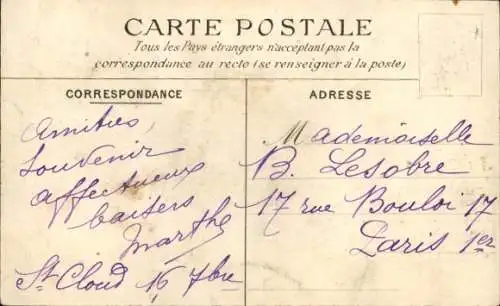 CARTE POSTALE
Tous les Pays étrangers n'acceptant pas la
correspondance au recto (se renseigner à la poste)
CORRESPONDANCE
Amitiés,
Souvenir
affectueux
baisers
Marthe
St Cloud 16 7bre
ADRESSE
Mademoiselle
B. Lesobre
17 rue Bouloi 17
Paris 1er